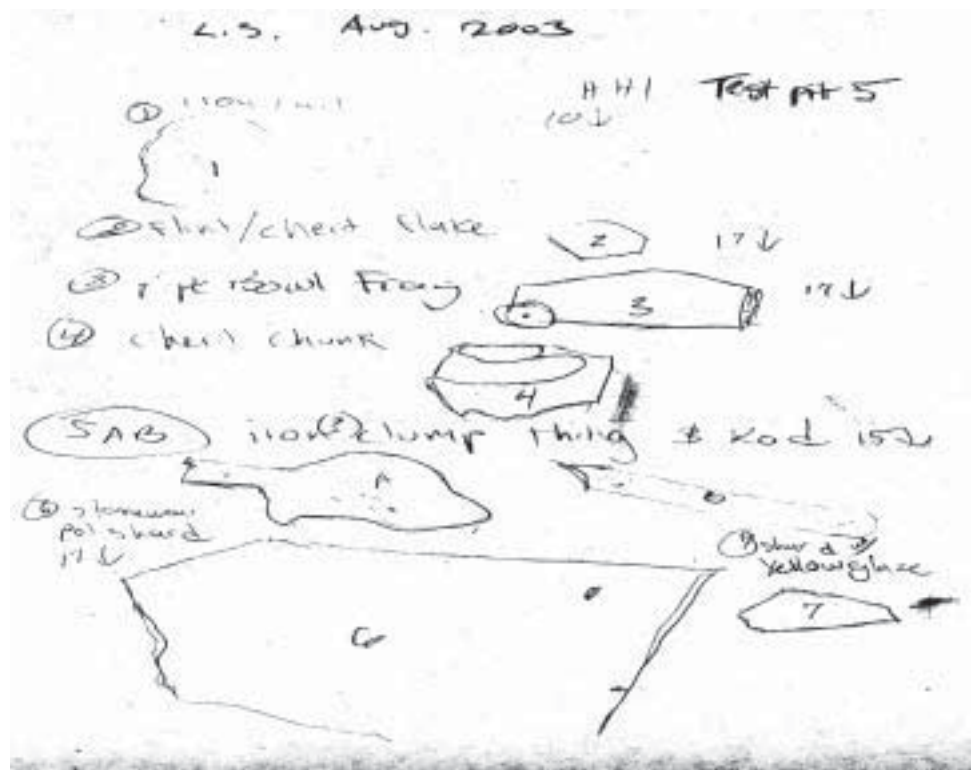 L.S. Aug. 2003
HH1 Test pit 5
① iron / nil
10↓
1
② flint/chert flake 2 17↓
③ pipe bowl Frag 3 17↓
④ chert chunk
4
5AB iron(?) clump thing & rod 15↓
A B
⑥ stoneware
pot shard
17↓
⑦ shard w/
yellow glaze
6 7